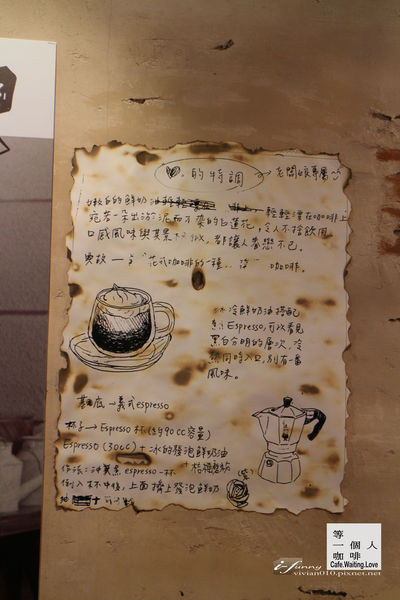 的特調 → 老闆娘專屬
嫩白的鮮奶油 輕輕漂在咖啡上
宛若一朵出淤泥而不染的白蓮花,令人不捨飲用
口感風味與其素材,都讓人眷戀不已。
典故 — 「花式咖啡的一種 咖啡。
冰冷鮮奶油搭配
Espresso,可以看見
黑白分明的層次,冷
熱同時入口,別有一番
風味。
基底 → 義式espresso
杯子 → Espresso 杯(約90cc容量)
Espresso (30cc) + 冰的發泡鮮奶油
作法:沖煮 espresso 一杯
倒入杯中後,上面擠上發泡鮮奶
油
等一個人咖啡
Cafe.Waiting.Love
i-funny
vivian010.pixnet.net